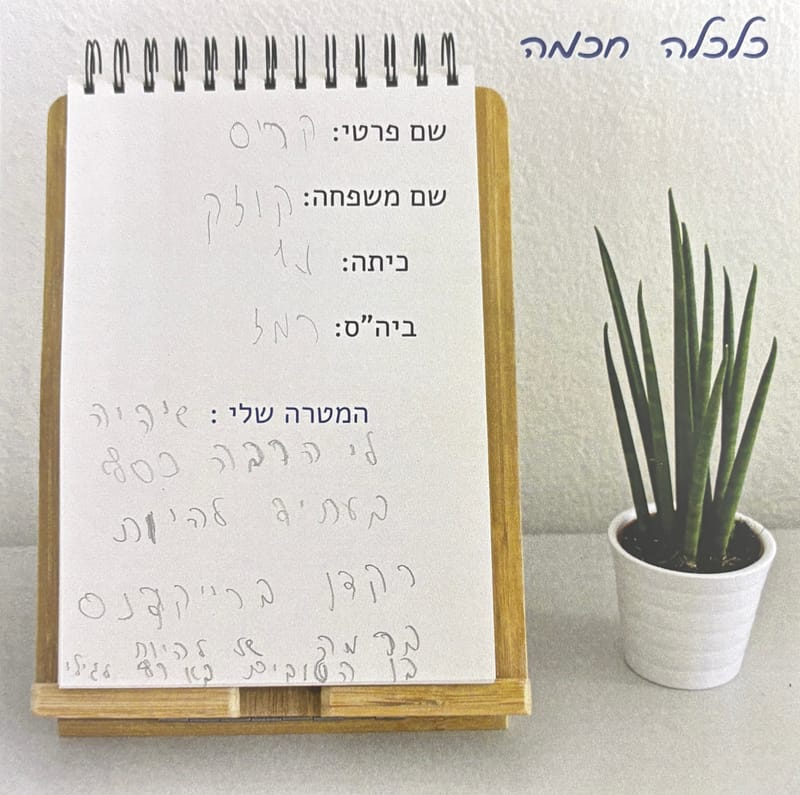 כלכלה חכמה
שם פרטי: קריס
שם משפחה: קוזק
כיתה:
ביה"ס: רמז
המטרה שלי: שיהיה
לי הרבה כסף
בעתיד להיות
רקדן ברייקדנס
להיות
בן הטובים לגילי